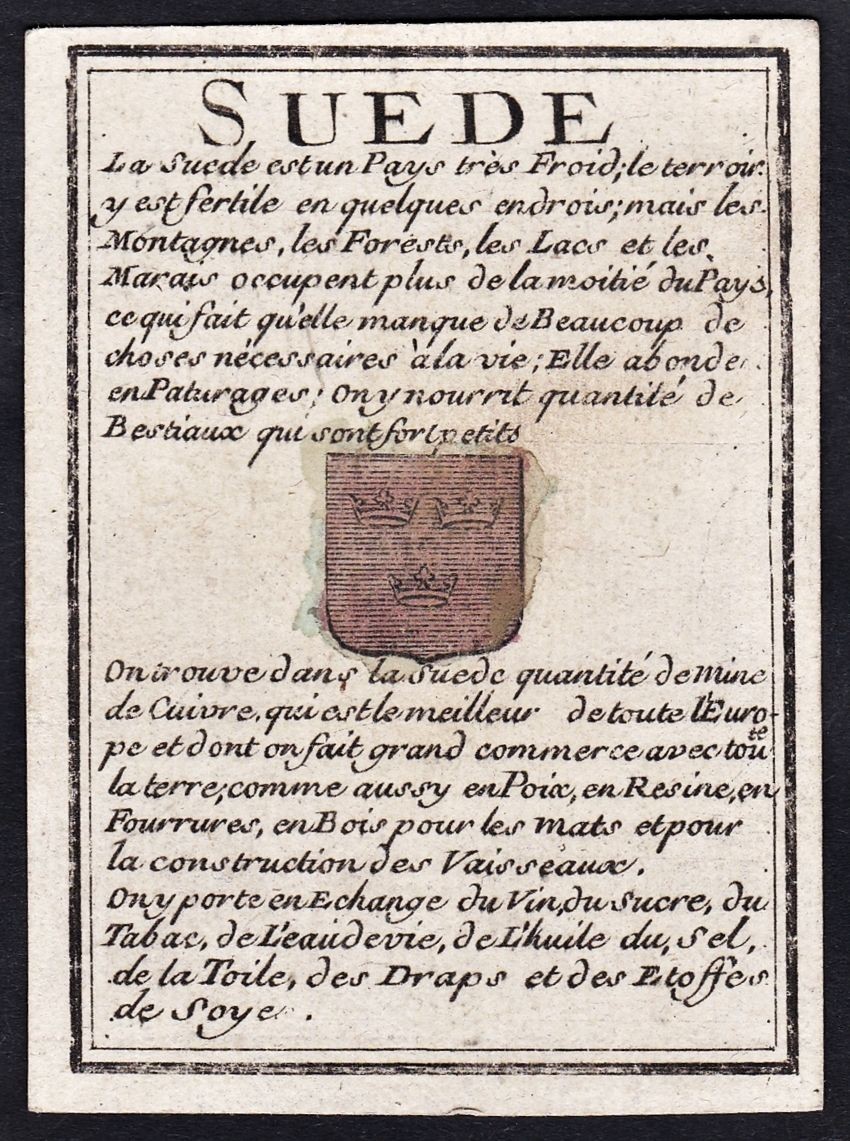 SUEDE
La Suede est un Pays très Froid; le terroir
y est fertile en quelques endrois; mais les
Montagnes, les Forests, les Lacs et les
Marais occupent plus de la moitié du Pays,
ce qui fait qu'elle manque de Beaucoup de
choses nécessaires à la vie; Elle abonde
en Paturages; On y nourrit quantité de
Bestiaux qui sont fort petits
On trouve dans la Suede quantité de mine
de Cuivre, qui est le meilleur de toute l'Euro-
pe et dont on fait grand commerce avec toutte
la terre; comme aussy en Poix, en Resine, en
Fourrures, en Bois pour les mats et pour
la construction des Vaisseaux.
On y porte en Echange du Vin, du Sucre, du
Tabac, de L'eau de vie, de L'huile du, Sel,
de la Toile, des Draps et des Etoffes
de Soye.